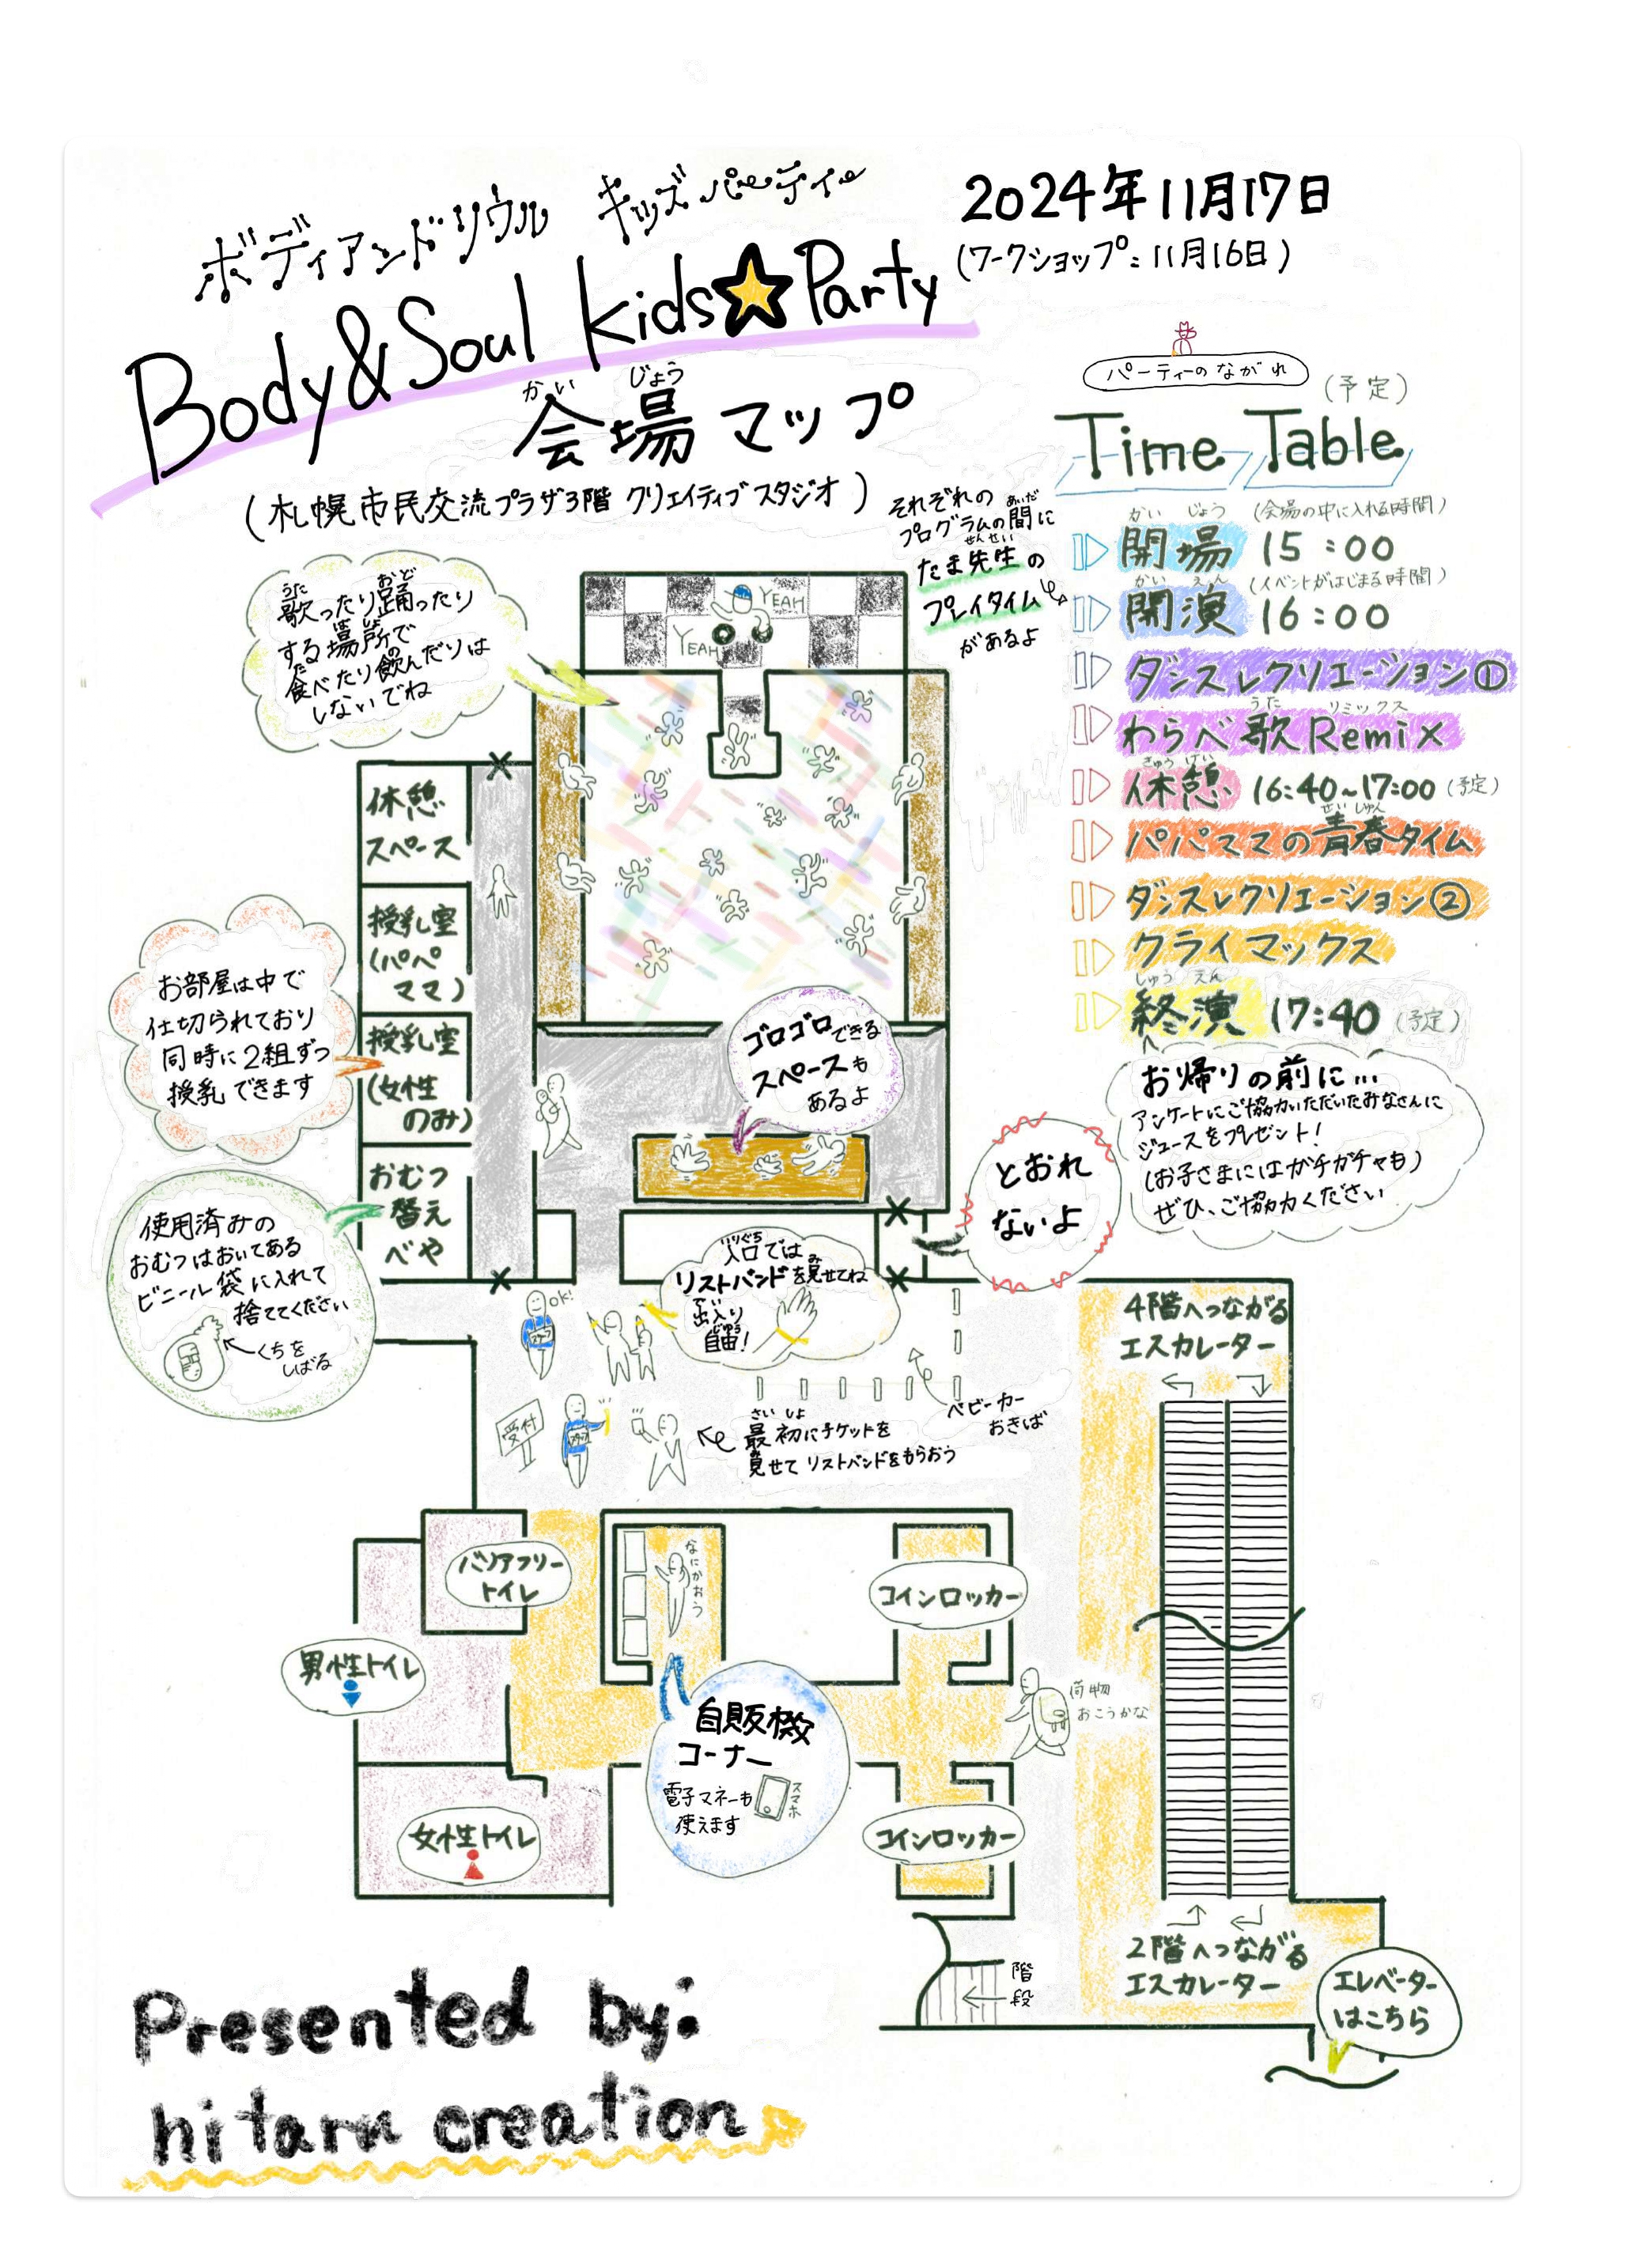 ボディアンドソウル キッズパーティー
Body&Soul Kids☆Party
かい じょう
会場マップ
(札幌市民交流プラザ3階 クリエイティブスタジオ)
2024年11月17日
(ワークショップ:11月16日)
パーティーのながれ
(予定)
Time Table
かい じょう
(会場の中に入れる時間)
開場 15:00
かい えん
(イベントがはじまる時間)
開演 16:00
ダンスレクリエーション①
うた リミックス
わらべ歌Remix
きゅう けい
休憩 16:40~17:00(予定)
せい しゅん
パパママの青春タイム
ダンスレクリエーション②
クライマックス
しゅう えん
終演 17:40(予定)
お帰りの前に…
アンケートにご協力いただいたみなさんに
ジュースをプレゼント!
(お子さまにはガチガチャも)
ぜひ、ご協力ください
それぞれの
あいだ
プログラムの間に
せんせい
たま先生の
プレイタイム
があるよ
うた おど
歌ったり踊ったり
ばしょ
する場所で
た の
食べたり飲んだりは
しないでね
YEAH
YEAH
休憩
スペース
授乳室
(パパ
ママ)
授乳室
(女性
のみ)
おむつ
替え
べや
お部屋は中で
仕切られており
同時に2組ずつ
授乳できます
使用済みの
おむつはおいてある
ビニール袋に入れて
捨ててください
くちを
しばる
ゴロゴロできる
スペースも
あるよ
とおれ
ないよ
いりぐち
入口では
み
リストバンドを見せてね
でい
出入り
じゆう
自由!
OK!
スタッフ
受付
スタッフ
さい しょ
最初にチケットを
み
見せてリストバンドをもらおう
ベビーカー
おきば
4階へつながる
エスカレーター
バリアフリー
トイレ
男性トイレ
女性トイレ
なにかおう
自販機
コーナー
電子マネーも
使えます
スマホ
コインロッカー
コインロッカー
荷物
おこうかな
階段
2階へつながる
エスカレーター
エレベーター
はこちら
Presented by:
hitaru creation